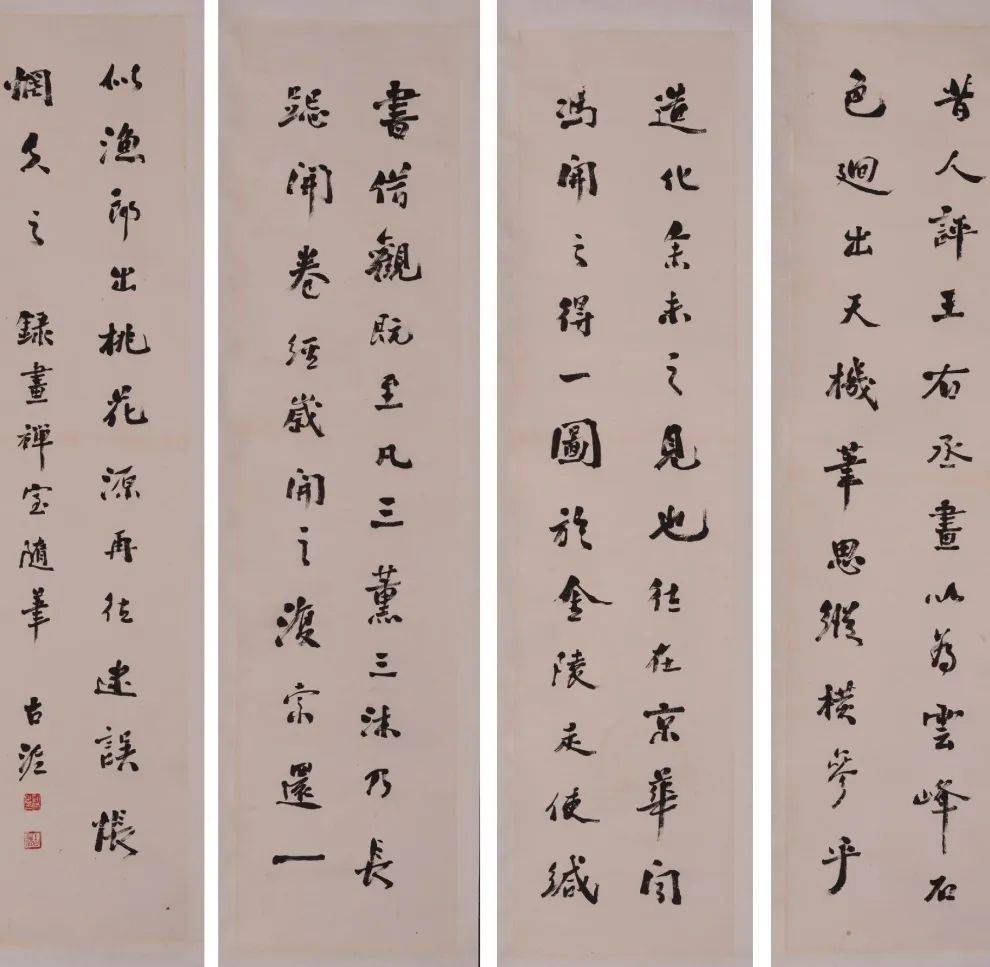 昔人評王右丞畫以為雲峰石
色廻出天機筆思縱橫參乎
造化余未之見也往在京華聞
馮開之得一圖於金陵走使緘
書借觀既至凡三薰三沐乃長
跽開卷經歲開之復索還一
似漁郎出桃花源再往迷誤悵
惘久之 錄畫禪室隨筆 古泥